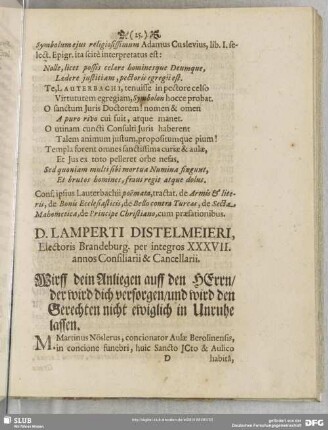 (25.)
Symbolum ejus religiosissimum Adamus Cuslevius, lib. I. se-
lect. Epigr. ita scitè interpretatus est:
Nolle, licet possis celare hominesque Deumque,
Ledere justitiam, pectoris egregii est.
Te, LAUTERBACHI, tenuisse in pectore celso
Virtututem egregiam, Symbolon hocce probat.
O sanctum Juris Doctorem! nomen & omen
A puro isto cui fuit, atque manet.
O utinam cuncti Consulti Juris haberent
Talem animum justum, propositumque pium!
Templa forent omnes sanctissima curiæ & aulæ,
Et jus ex toto pelleret orbe nefas,
Sed quoniam multi sibi mortua Numina fingunt,
Et brutos homines, fraus regit atque dolus.
Cons. ipsius Lauterbachii poëmata, tractat. de Armis & lite-
ris, de Bonis Ecclesiasticis, de Bello contra Turcas, de Secta
Mahometica, de Principe Christiano, cum præfationibus.
D. LAMPERTI DISTELMEIERI,
Electoris Brandeburg. per integros XXXVII.
annos Consiliarii & Cancellarii.
Wirff dein Anliegen auff den HErrn/
der wird dich versorgen/und wird den
Gerechten nicht ewiglich in Unruhe
lassen.
M. Martinus Nöslerus, concionator Aulæ Berolinensis,
in concione funebri, huic Sancto JCto & Aulico
D habitâ,
SLUB
Wir führen Wissen.
gefördert von der
Deutschen Forschungsgemeinschaft
DFG